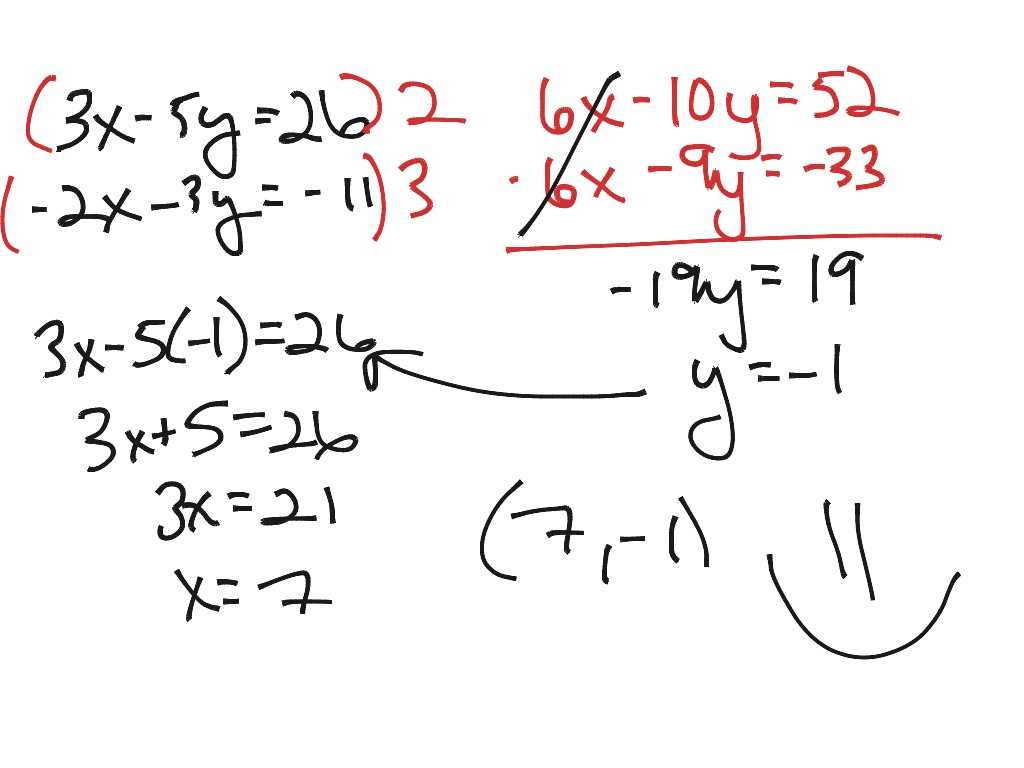 (3x - 5y = 26) 2
(-2x - 3y = -11) 3
6x - 10y = 52
-6x - 9y = -33
-19y = 19
y = -1
3x - 5(-1) = 26
3x + 5 = 26
3x = 21
x = 7
(7, -1)